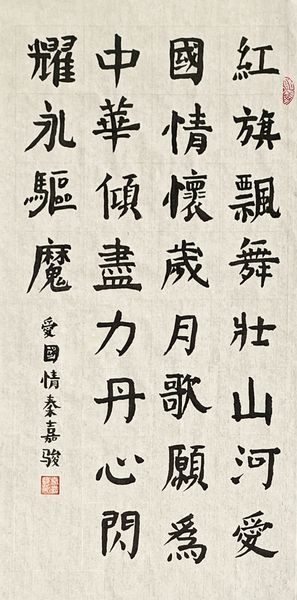 紅旗飄舞壯山河愛
國情懷歲月歌願為
中華傾盡力丹心閃
耀永驅魔
愛國情秦嘉骏